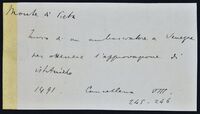 Monte di Pietà
Invio di un ambasciatore a Venezia
per ottenere l'approvazione di
istituirlo
1491. Cancelleria VIII.
245-246